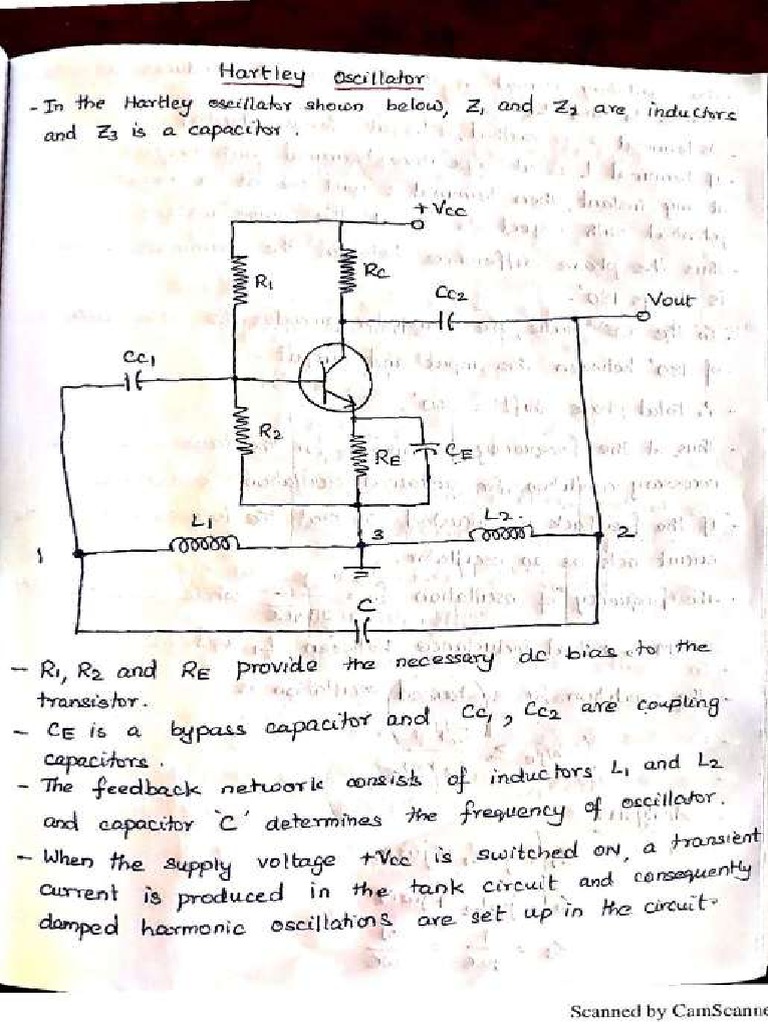 Hartley Oscillator
- In the Hartley oscillator shown below, Z1 and Z2 are inductors
and Z3 is a capacitor.
+Vcc
R1
RC
CC2
Vout
CC1
R2
RE
CE
L1
3
L2
1
2
C
- R1, R2 and RE provide the necessary dc bias to the
transistor.
- CE is a bypass capacitor and CC1, CC2 are coupling
capacitors.
- The feedback network consists of inductors L1 and L2
and capacitor 'C' determines the frequency of oscillator.
- When the supply voltage +Vcc is switched ON, a transient
current is produced in the tank circuit and consequently
damped harmonic oscillations are set up in the circuit.
Scanned by CamScanne